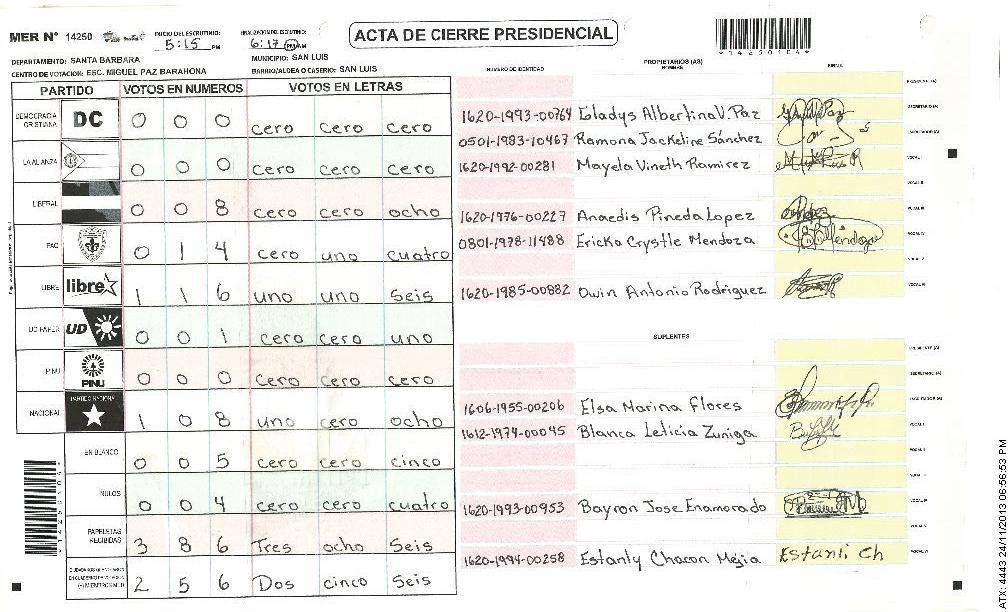 MER Nº 14250
INICIO DEL ESCRUTINIO: 5:15 PM
FINALIZACION DEL ESCRUTINIO: 6:17 PM AM
ACTA DE CIERRE PRESIDENCIAL
DEPARTAMENTO: SANTA BARBARA
MUNICIPIO: SAN LUIS
CENTRO DE VOTACION: ESC. MIGUEL PAZ BARAHONA
BARRIO/ALDEA O CASERIO: SAN LUIS
PARTIDO VOTOS EN NUMEROS VOTOS EN LETRAS
DEMOCRACIA CRISTIANA DC 0 0 0 cero cero cero
LA ALIANZA 0 0 0 cero cero cero
LIBERAL 0 0 8 cero cero ocho
PAC 0 1 4 cero uno cuatro
LIBRE libre 1 1 6 uno uno Seis
UD FAPER UD 0 0 1 cero cero uno
PINU PINU 0 0 0 cero cero cero
NACIONAL PARTIDO NACIONAL 1 0 8 uno cero ocho
EN BLANCO 0 0 5 cero cero cinco
NULOS 0 0 4 cero cero cuatro
PAPELETAS RECIBIDAS 3 8 6 Tres ocho Seis
2 5 6 Dos cinco Seis
NUMERO DE IDENTIDAD
PROPIETARIOS (AS)
NOMBRE
FIRMA
PRESIDENTE (A)
1620-1993-00764 Egladys Albertina V. Paz SECRETARIO (A)
0501-1983-10467 Ramona Jackeline Sánchez
1620-1992-00281 Mayela Vineth Ramirez VOCAL I
VOCAL II
1620-1976-00227 Anaedis Pineda Lopez VOCAL III
0801-1978-11488 Ericka Crystle Mendoza VOCAL IV
VOCAL V
1620-1985-00882 Owin Antonio Rodriguez VOCAL VI
SUPLENTES
PRESIDENTE (A)
SECRETARIO (A)
1606-1955-00206 Elsa Marina Flores
1612-1974-00045 Blanca Leticia Zuniga VOCAL I
VOCAL II
VOCAL III
1620-1993-00953 Bayron Jose Enamorado VOCAL IV
VOCAL V
1620-1994-00258 Estanly Chacon Mejia Estanli Ch VOCAL VI
ATX: 4443 24/11/2013 06:56:53 PM